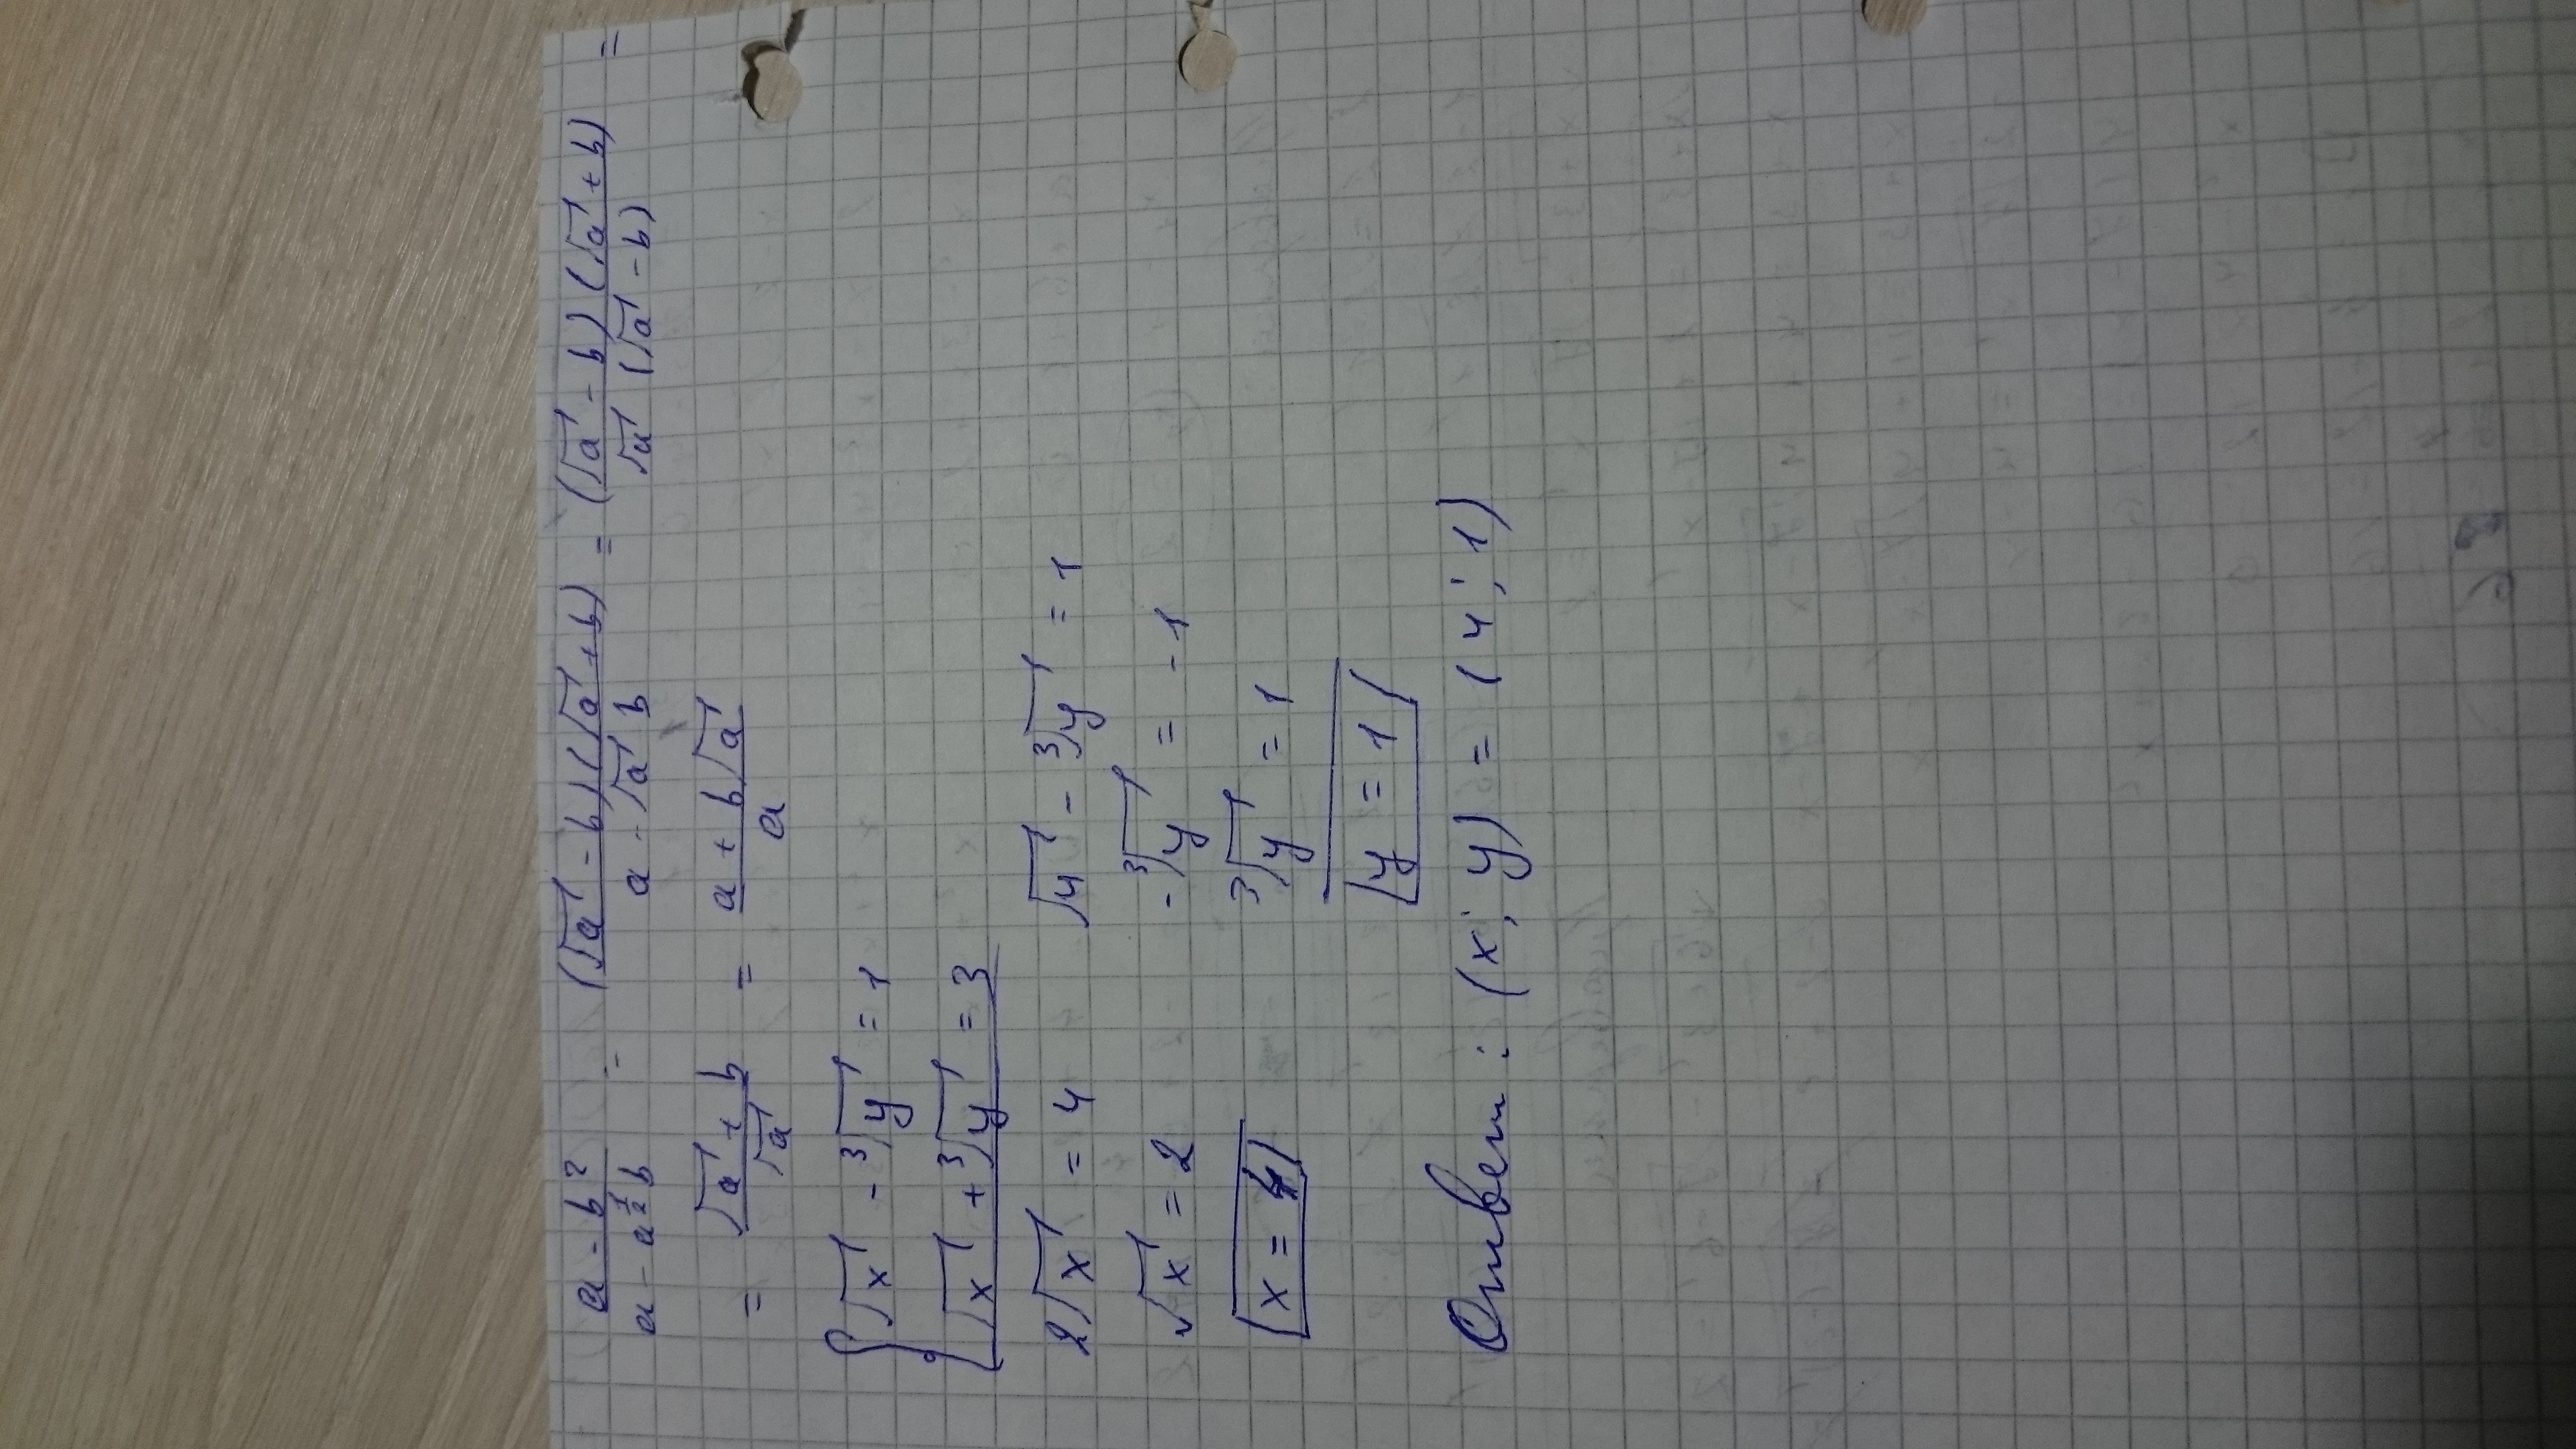 (a - b²)/(a - a^(1/2) b) = ((√a - b)(√a + b))/(a - √a b) = ((√a - b)(√a + b))/(√a (√a - b)) =
= (√a + b)/√a = (a + b√a)/a
{ √x - ³√y = 1
√x + ³√y = 3
2√x = 4 √4 - ³√y = 1
√x = 2 -³√y = -1
x = 4 ³√y = 1
y = 1
Ответ: (x; y) = (4; 1)